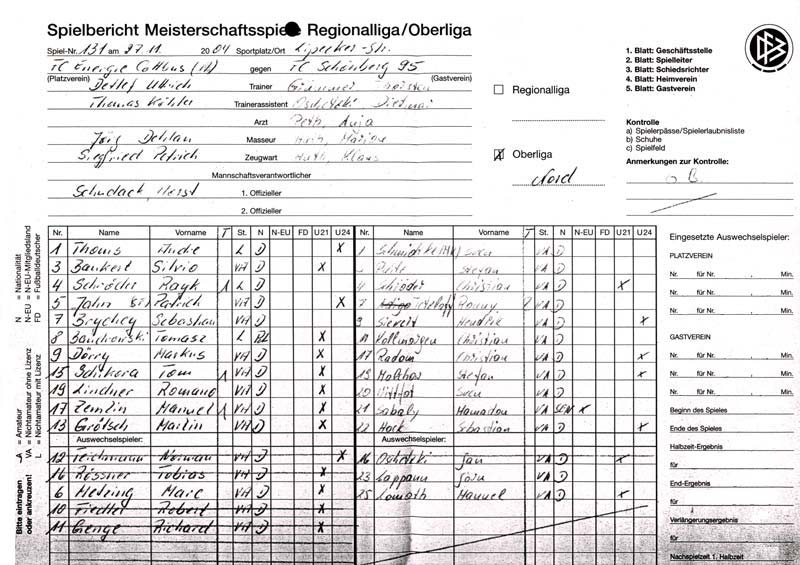 Spielbericht Meisterschaftsspiele Regionalliga/Oberliga
Spiel-Nr. 131 am 27.11. 2004 Sportplatz/Ort Lipezker-Str.
FC Energie Cottbus (A) gegen FC Schönberg 95
(Platzverein) (Gastverein)
Detlef Ullrich Trainer
Thomas Köhler Trainerassistent Dietmar
Arzt Anja
Jörg Masseur
Siegfried Petrich Zeugwart Klaus
Mannschaftsverantwortlicher
Schudack, Horst 1. Offizieller
2. Offizieller
Regionalliga
Oberliga
Nord
1. Blatt: Geschäftsstelle
2. Blatt: Spielleiter
3. Blatt: Schiedsrichter
4. Blatt: Heimverein
5. Blatt: Gastverein
DFB
Kontrolle
a) Spielerpässe/Spielerlaubnisliste
b) Schuhe
c) Spielfeld
Anmerkungen zur Kontrolle:
o B.
N = Nationalität
N-EU = N-EU-Mitgliedsland
FD = Fußballdeutscher
A = Amateur
VA = Nichtamateur ohne Lizenz
L = Nichtamateur mit Lizenz
Bitte eintragen oder ankreuzen!
Nr. Name Vorname T St. N N-EU FD U21 U24
1 Thoms Andre L D X
3 Bankert Silvio VA D X
4 Schröder Rayk 1 L D
5 Jahn Patrick VA D X
7 Brychcy Sebastian VA D X
8 Tomasz L PL X
9 Dörry Markus VA D X
15 Sdzikora Tom 1 VA D X
19 Lindner Romano VA D X
17 Zemlin Manuel 1 VA D X
13 Grötsch Martin VA D X
Auswechselspieler:
12 Teichmann Norman VA D X
16 Rössner Tobias VA D X
6 Hetzing Marc VA D X
10 Fiedler Robert VA D X
11 Genge Richard VA D X
Nr. Name Vorname T St. N N-EU FD U21 U24
Sven VA D
Stefan VA D
4 Schröder Christian VA D X
Ronny VA D
9 Sievert Hendrik VA D X
11 Kollmorgen Christian VA D
17 Radom Christian VA D X
19 Stefan VA D X
20 Sven VA D
21 Sabaly Hamadou VA SEN X
22 Hock Sebastian VA D X
Auswechselspieler:
16 Jan VA D X
23 Lappann VA D
25 Manuel VA D X
Eingesetzte Auswechselspieler:
PLATZVEREIN
Nr. für Nr. , Min.
Nr. für Nr. , Min.
Nr. für Nr. , Min.
GASTVEREIN
Nr. für Nr. , Min.
Nr. für Nr. , Min.
Nr. für Nr. , Min.
Beginn des Spieles
Ende des Spieles
Halbzeit-Ergebnis
für
End-Ergebnis
für
Verlängerungsergebnis
für
Nachspielzeit 1. Halbzeit